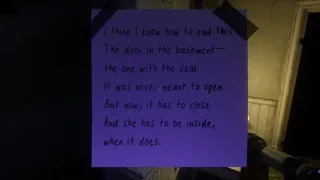 I think I know how to end this.
The door in the basement—
the one with the seal.
It was never meant to open.
But now, it has to close.
And she has to be inside,
when it does.